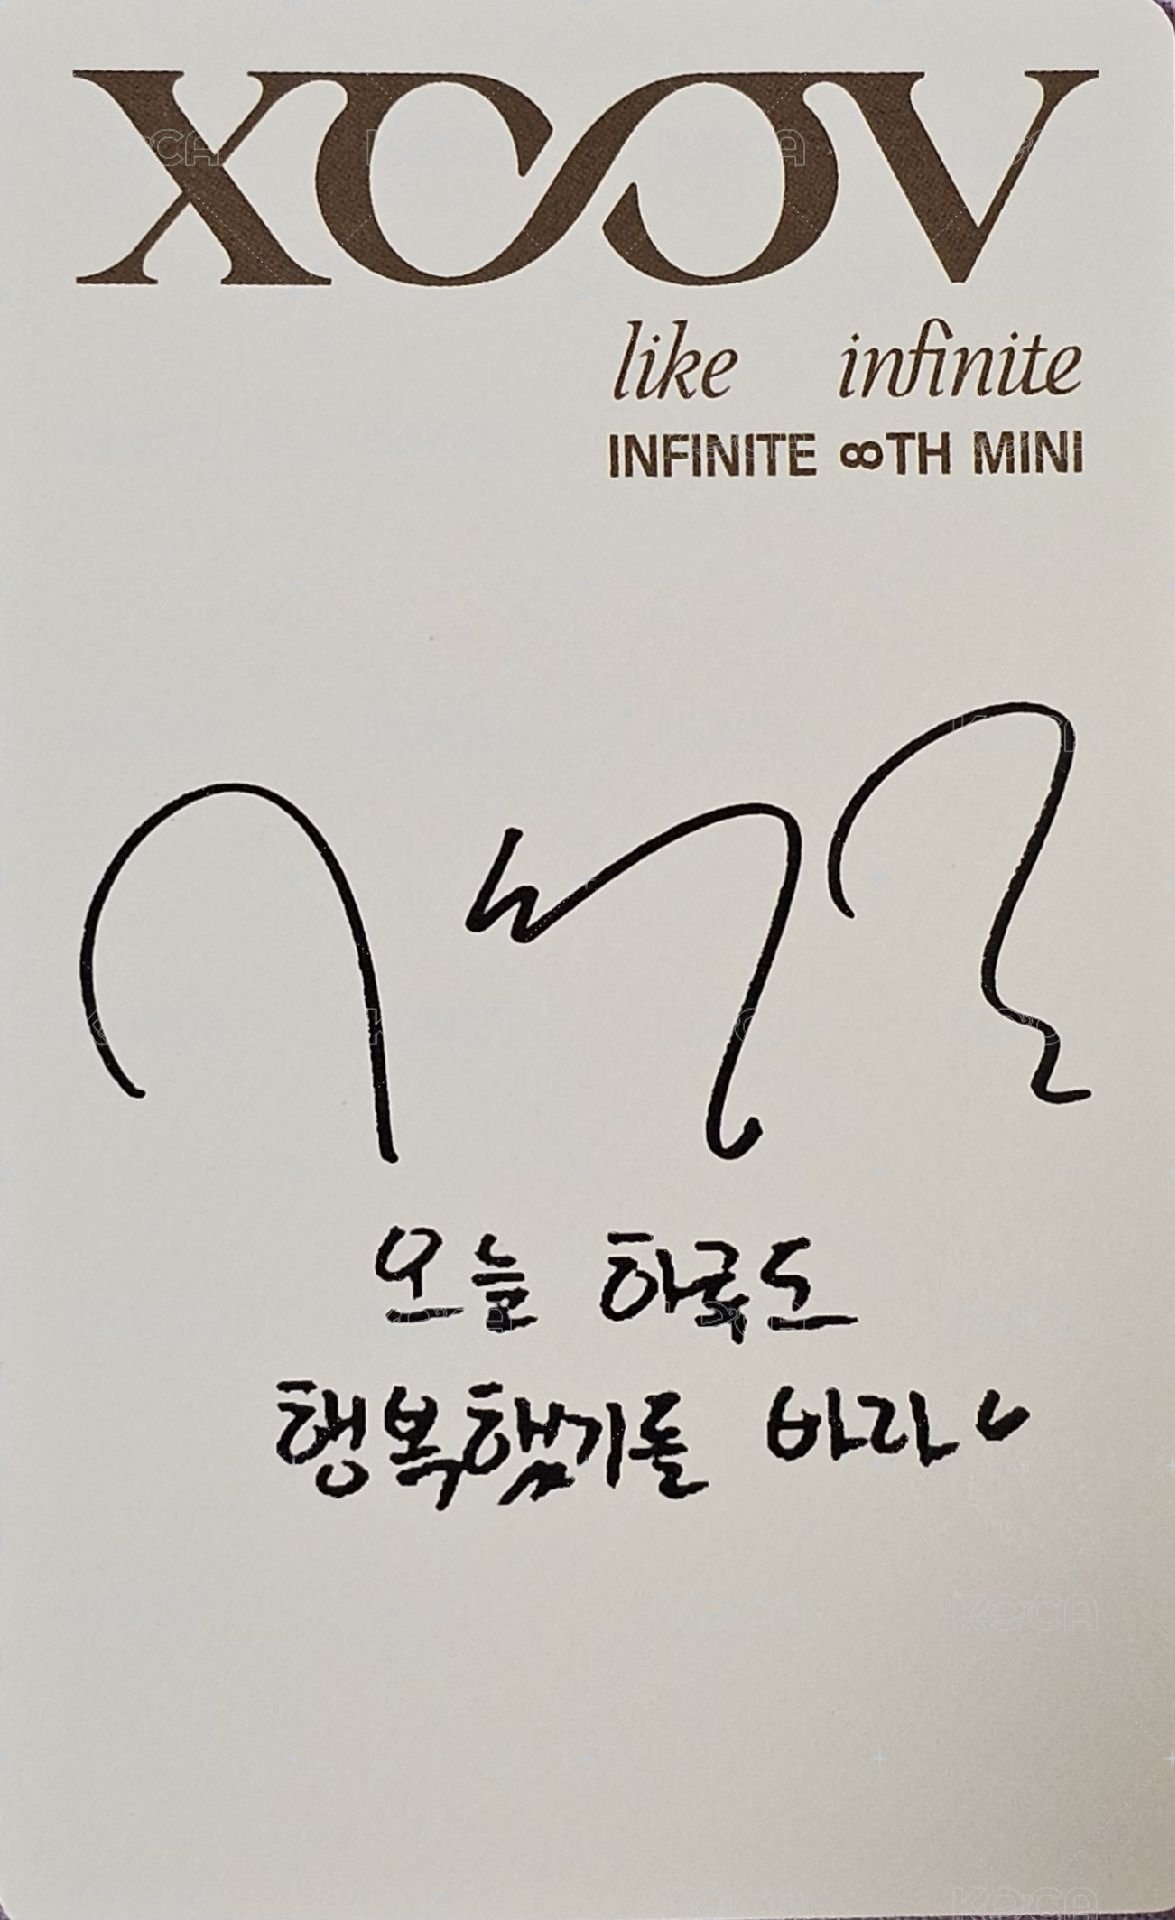 X∞V
like infinite
INFINITE ∞TH MINI
오늘 하루도
행복했기를 바라
KOCA